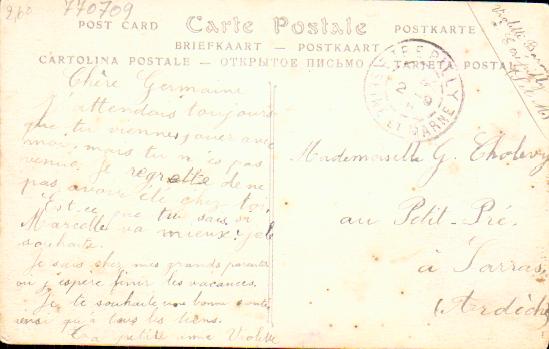 2,60
770709
POST CARD Carte Postale POSTKARTE
BRIEFKAART — POSTKAART
CARTOLINA POSTALE — ОТКРЫТОЕ ПИСЬМО — TARJETA POSTAL
Violette
Chère Germaine
J'attendais toujours
que tu viennes jouer avec
moi, mais tu n'es pas
venue. Je regrette de ne
pas avoir été chez toi,
Est-ce que tu sais si
Marcelle va mieux? je le
souhaite.
Je suis chez mes grands parents
où j'espère finir les vacances.
Je te souhaite une bonne santé
ainsi qu'à tous les tiens.
Ta petite amie Violette
SEINE ET MARNE
Mademoiselle G. Cholevy
au Petit-Pré.
à Sarras
(Ardèche)